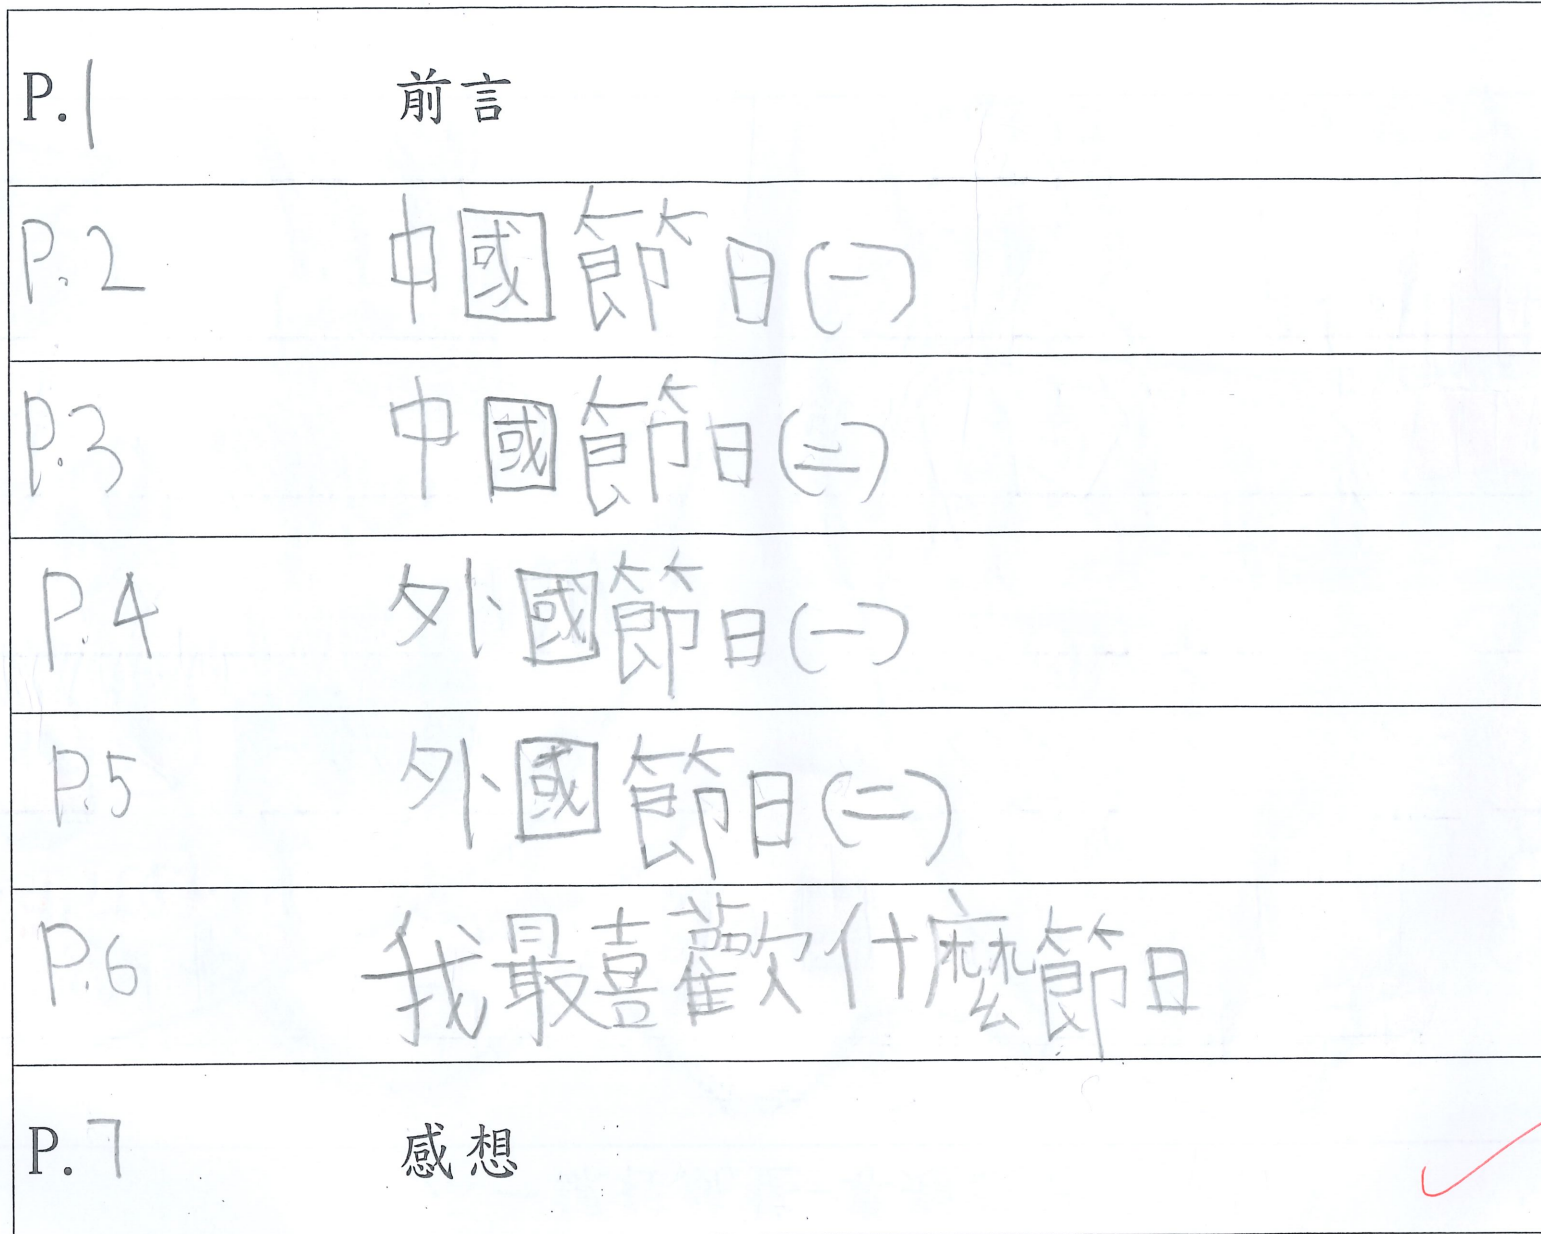 P.1 前言
P.2 中國節日(一)
P.3 中國節日(二)
P.4 外國節日(一)
P.5 外國節日(二)
P.6 我最喜歡什麼節日
P.7 感想